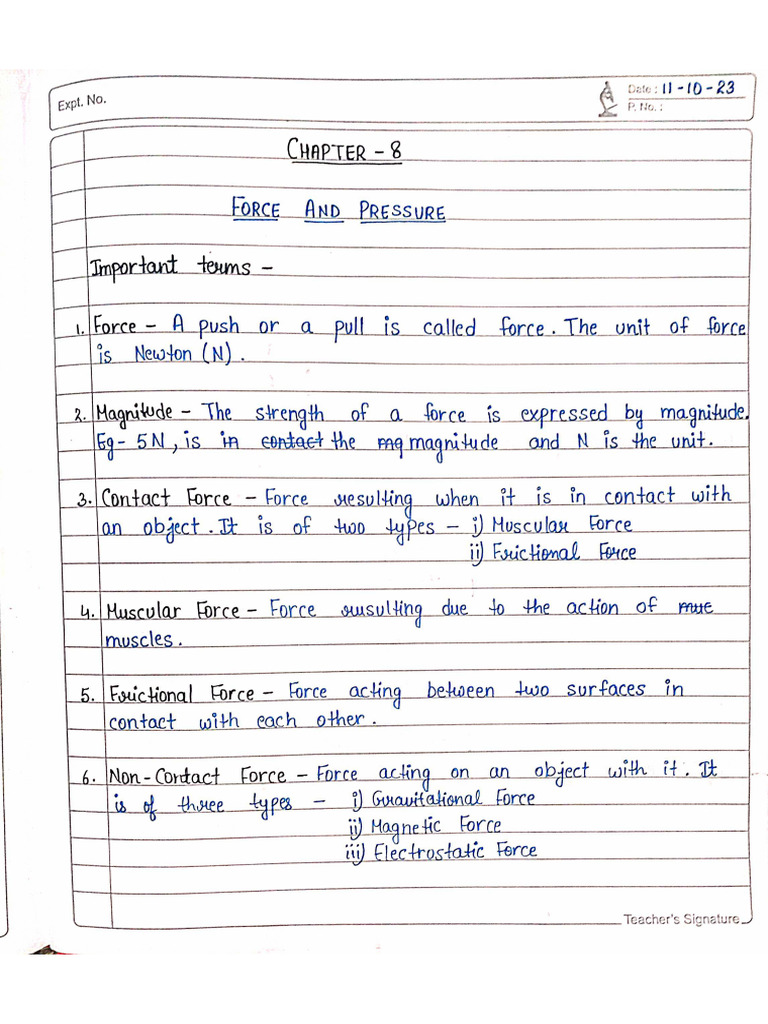 Expt. No.
Date : 11-10-23
P. No. :
CHAPTER - 8
FORCE AND PRESSURE
Important terms -
1. Force - A push or a pull is called force. The unit of force
is Newton (N).
2. Magnitude - The strength of a force is expressed by magnitude.
Eg - 5N, is in contact the mq magnitude and N is the unit.
3. Contact Force - Force resulting when it is in contact with
an object. It is of two types - i) Muscular Force
ii) Frictional Force
4. Muscular Force - Force rusulting due to the action of mue
muscles.
5. Frictional Force - Force acting between two surfaces in
contact with each other.
6. Non-Contact Force - Force acting on an object with it. It
is of three types - i) Gravitational Force
ii) Magnetic Force
iii) Electrostatic Force
Teacher's Signature